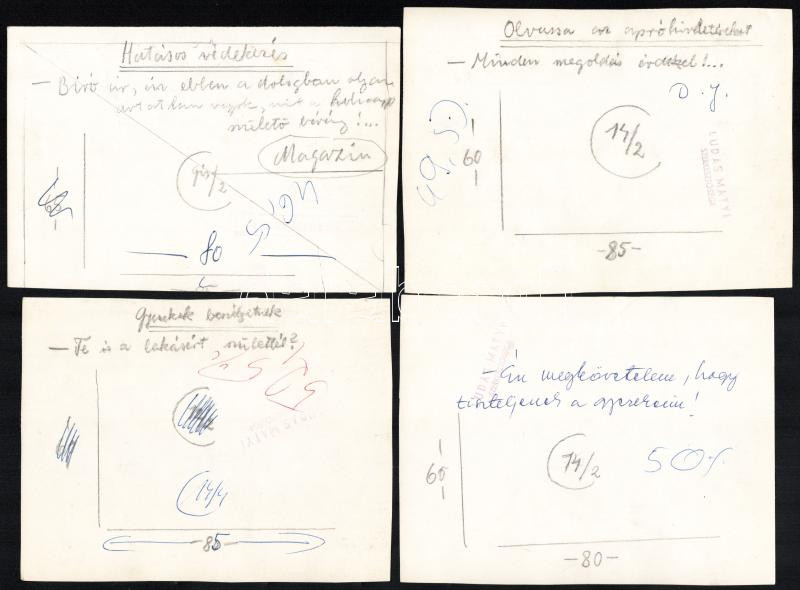 Hatásos védekezés
— Bíró úr, én ebben a dologban olyan
ártatlan vagyok, mint a holnap
születő bárány!...
Magazin
80
Olvassa az apróhirdetéseket
— Minden megoldás érdekel!...
D. J.
49,5
14/2
-60-
-85-
LUDAS MATYI
Gyerekek beszélgetnek
— Te is a lakásért születtél?
14/4
-85-
LUDAS MATYI
— Én megkövetelem, hogy
tiszteljenek a gyerekeim!
14/2
50%
60
-80-
LUDAS MATYI